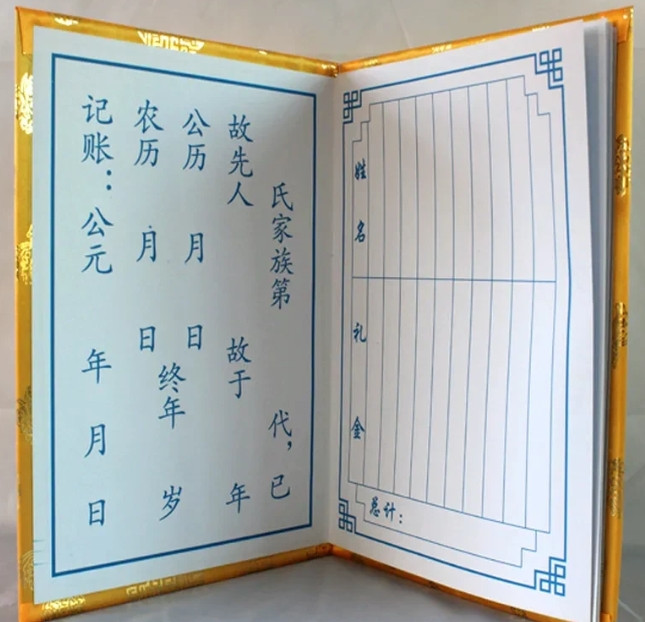 氏家族第 代,已
故先人 故于 年
公历 月 日
农历 月 日
终年 岁
记账:公元 年 月 日
姓名
礼金
总计: